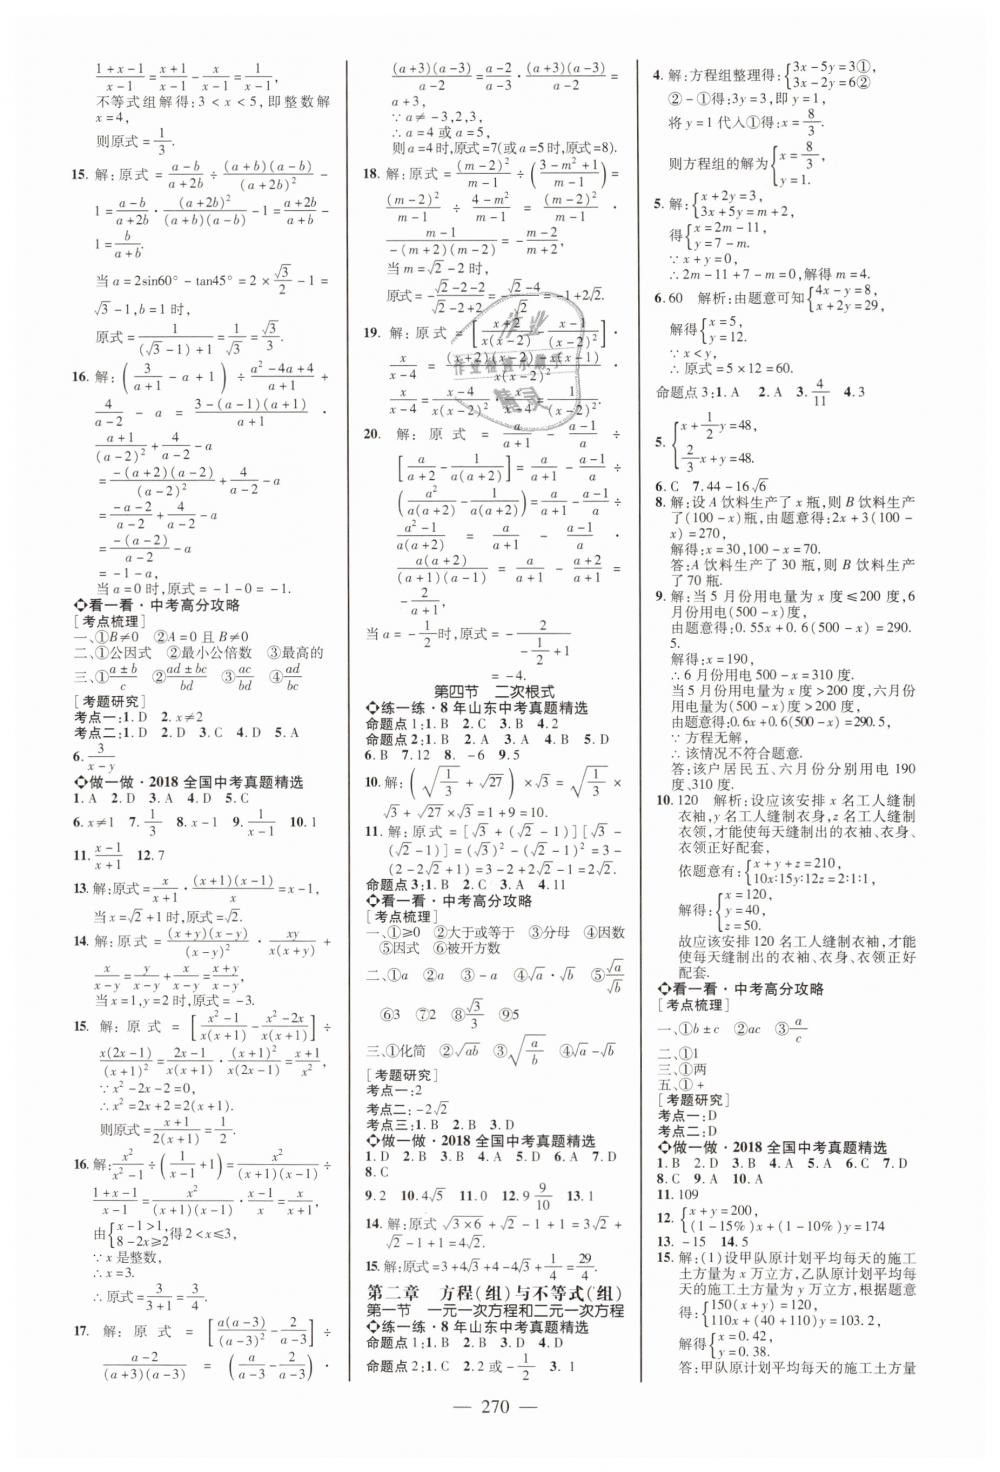 (1+x-1)/(x-1)=(x+1)/(x-1)-x/(x-1)=1/(x-1),
不等式组解得:3<x<5,即整数解
x=4,
则原式=1/3.
15. 解:原式=(a-b)/(a+2b)÷(a+b)(a-b)/(a+2b)²-
1=(a-b)/(a+2b)·(a+2b)²/(a+b)(a-b)-1=(a+2b)/(a+b)-
1=b/(a+b).
当a=2sin60°-tan45°=2×√3/2-1=
√3-1,b=1时,
原式=1/((√3-1)+1)=1/√3=√3/3.
16. 解:(3/(a+1)-a+1)÷(a²-4a+4)/(a+1)+
4/(a-2)-a=(3-(a-1)(a+1))/(a+1)·
(a+1)/(a-2)²+4/(a-2)-a
=-(a+2)(a-2)/(a-2)²+4/(a-2)-a
=(-a-2)/(a-2)+4/(a-2)-a
=-(a-2)/(a-2)-a
=-1-a,
当a=0时,原式=-1-0=-1.
◇看一看·中考高分攻略
[考点梳理]
一、①B≠0 ②A=0且B≠0
二、①公因式 ②最小公倍数 ③最高的
三、①(a±b)/c ②(ad±bc)/bd ③ac/bd ④ad/bc
[考题研究]
考点一:1. D 2. x≠2
考点二:1. D 2. D 3. C 4. D 5. A
6. 3/(x-y)
◇做一做·2018全国中考真题精选
1. A 2. D 3. A 4. D 5. C
6. x≠1 7. 1/3 8. x-1 9. 1/(x-1) 10. 1
11. (x-1)/(x+1) 12. 7
13. 解:原式=x/(x+1)·(x+1)(x-1)/x=x-1,
当x=√2+1时,原式=√2.
14. 解:原式=(x+y)(x-y)/(x-y)²·xy/(x+y)+
x/(x-y)=y/(x-y)+x/(x-y)=(x+y)/(x-y)
当x=1,y=2时,原式=-3.
15. 解:原式=[(x²-1)/x(x+1)-(x²-2x)/x(x+1)]÷
x(2x-1)/(x+1)²=(2x-1)/x(x+1)·(x+1)²/x(2x-1)=(x+1)/x²,
∵x²-2x-2=0,
∴x²=2x+2=2(x+1),
则原式=(x+1)/2(x+1)=1/2.
16. 解:x²/(x²-1)÷(1/(x-1)+1)=x²/(x+1)(x-1)÷
(1+x-1)/(x-1)=x²/(x+1)(x-1)·(x-1)/x=x/(x+1),
由{x-1>1, 8-2x≥2得2<x≤3,
∵x是整数,
∴x=3.
∴原式=3/(3+1)=3/4.
17. 解:原式=[a(a-3)/(a-3)²-2/(a-3)]÷
(a-2)/(a+3)(a-3)=(a/(a-3)-2/(a-3))·
(a+3)(a-3)/(a-2)=(a-2)/(a-3)·(a+3)(a-3)/(a-2)=
a+3,
∵a≠-3,2,3,
∴a=4或a=5,
则a=4时,原式=7(或a=5时,原式=8).
18. 解:原式=(m-2)²/(m-1)÷((3-m²+1)/(m-1))=
(m-2)²/(m-1)÷(4-m²)/(m-1)=(m-2)²/(m-1)·
(m-1)/-(m+2)(m-2)=-(m-2)/(m+2),
当m=√2-2时,
原式=-(√2-2-2)/(√2-2+2)=-(√2-4)/√2=-1+2√2.
19. 解:原式=[(x+2)/x(x-2)-(x-1)/(x-2)²]·
x/(x-4)=((x+2)(x-2)-x(x-1))/x(x-2)²·
x/(x-4)=(x-4)/x(x-2)²·x/(x-4)=1/(x-2)².
20. 解:原式=a/(a+1)-(a-1)/a÷
[a/(a+2)-1/a(a+2)]=a/(a+1)-(a-1)/a÷
(a²/a(a+2)-1/a(a+2))=a/(a+1)-(a-1)/a÷
(a²-1)/a(a+2)=a/(a+1)-(a-1)/a·
a(a+2)/(a+1)(a-1)=a/(a+1)-(a+2)/(a+1)=
-2/(a+1),
当a=-1/2时,原式=-2/(-1/2+1)
=-4.
第四节 二次根式
◇练一练·8年山东中考真题精选
命题点1:1. B 2. C 3. B 4. 2
命题点2:1. B 2. A 3. A 4. B 5. D
6. B 7. 12 8. -6 9. 5
10. 解:(√(1/3)+√27)×√3=√(1/3)×
√3+√27×√3=1+9=10.
11. 解:原式=[√3+(√2-1)][√3-
(√2-1)]=(√3)²-(√2-1)²=3-
(2-2√2+1)=3-2+2√2-1=2√2.
命题点3:1. B 2. C 3. A 4. 11
◇看一看·中考高分攻略
[考点梳理]
一、①≥0 ②大于或等于 ③分母 ④因数
⑤因式 ⑥被开方数
二、①a ②a ③-a ④√a·√b ⑤√a/√b
⑥3 ⑦2 ⑧√3/3 ⑨5
三、①化简 ②√ab ③√(a/b) ④√a-√b
[考题研究]
考点一:2
考点二:-2√2
考点三:1. B 2. B 3. D
◇做一做·2018全国中考真题精选
1. D 2. B 3. B 4. D 5. B 6. A 7. D
8. C
9. 2 10. 4√5 11. 0 12. 9 9/10 13. 1
14. 解:原式√(3×6)+√2-1+1=3√2+
√2-1+1=4√2.
15. 解:原式=4√3+4-4√3+1/4=29/4.
第二章 方程(组)与不等式(组)
第一节 一元一次方程和二元一次方程
◇练一练·8年山东中考真题精选
命题点1:1. B 2. B 3. D 4. D
命题点2:1. C 2. 2或-1/2 3. 1
4. 解:方程组整理得:{3x-5y=3①, 3x-2y=6②
②-①得:3y=3,即y=1,
将y=1代入①得:x=8/3.
则方程组的解为{x=8/3, y=1.
5. 解:{x+2y=3, 3x+5y=m+2,
得{x=2m-11, y=7-m.
∵x+y=0,
∴2m-11+7-m=0,解得m=4.
6. 60 解析:由题意可知{4x-y=8, x+2y=29,
解得{x=5, y=12.
∵x<y,
∴原式=5×12=60.
命题点3:1. A 2. A 3. 4/11 4. 3
5. {x+1/2y=48, 2/3x+y=48.
6. C 7. 44-16√6
8. 解:设A饮料生产了x瓶,则B饮料生产
了(100-x)瓶,由题意得:2x+3(100-
x)=270,
解得:x=30,100-x=70.
答:A饮料生产了30瓶,则B饮料生产
了70瓶.
9. 解:当5月份用电量为x度≤200度,6
月份用电(500-x)度,
由题意得:0.55x+0.6(500-x)=290.
5.
解得:x=190,
∴6月份用电500-x=310度.
当5月份用电量为x度>200度,六月份
用电量为(500-x)度>200度,
由题意得:0.6x+0.6(500-x)=290.5,
∵方程无解,
∴该情况不符合题意.
答:该户居民五、六月份分别用电190
度、310度.
10. 120 解析:设应该安排x名工人缝制
衣袖,y名工人缝制衣身,z名工人缝制
衣领,才能使每天缝制出的衣袖、衣身、
衣领正好配套,
依题意有:{x+y+z=210, 10x:15y:12z=2:1:1,
解得:{x=120, y=40, z=50.
故应该安排120名工人缝制衣袖,才能
使每天缝制出的衣袖、衣身、衣领正好
配套.
◇看一看·中考高分攻略
[考点梳理]
一、①b±c ②ac ③a/c
二、①1
三、①两
五、①+
[考题研究]
考点一:D
考点二:D
◇做一做·2018全国中考真题精选
1. B 2. D 3. B 4. A 5. A 6. C 7. D
8. C 9. A 10. A
11. 109
12. {x+y=200, (1-15%)x+(1-10%)y=174
13. -15 14. 5
15. 解:(1)设甲队原计划平均每天的施工
土方量为x万立方,乙队原计划平均每天
的施工土方量为y万立方,根据题意
得:{150(x+y)=120, 110x+(40+110)y=103.2,
解得{x=0.42, y=0.38.
答:甲队原计划平均每天的施工土方量
— 270 —